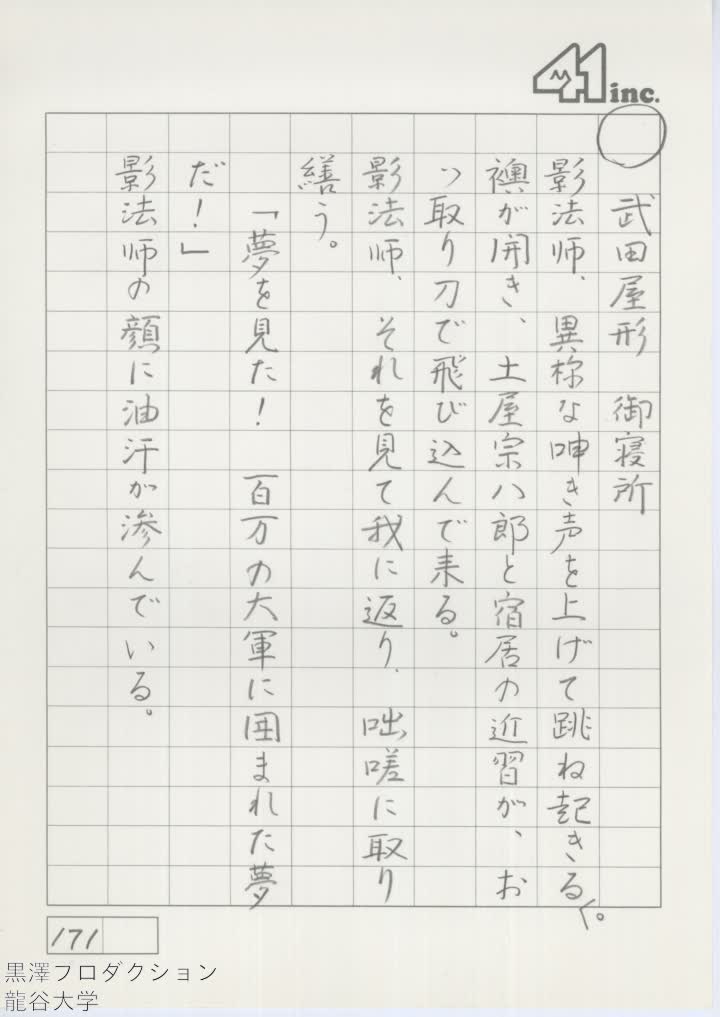 41 inc.
○ 武田屋形 御寝所
影法師、異様な呻き声を上げて跳ね起きる。
襖が開き、土屋宗八郎と宿居の近習が、お
っ取り刀で飛び込んで来る。
影法師、それを見て我に返り、咄嗟に取り
繕う。
「夢を見た！ 百万の大軍に囲まれた夢
だ！」
影法師の顔に油汗が滲んでいる。
171
黒澤プロダクション
龍谷大学